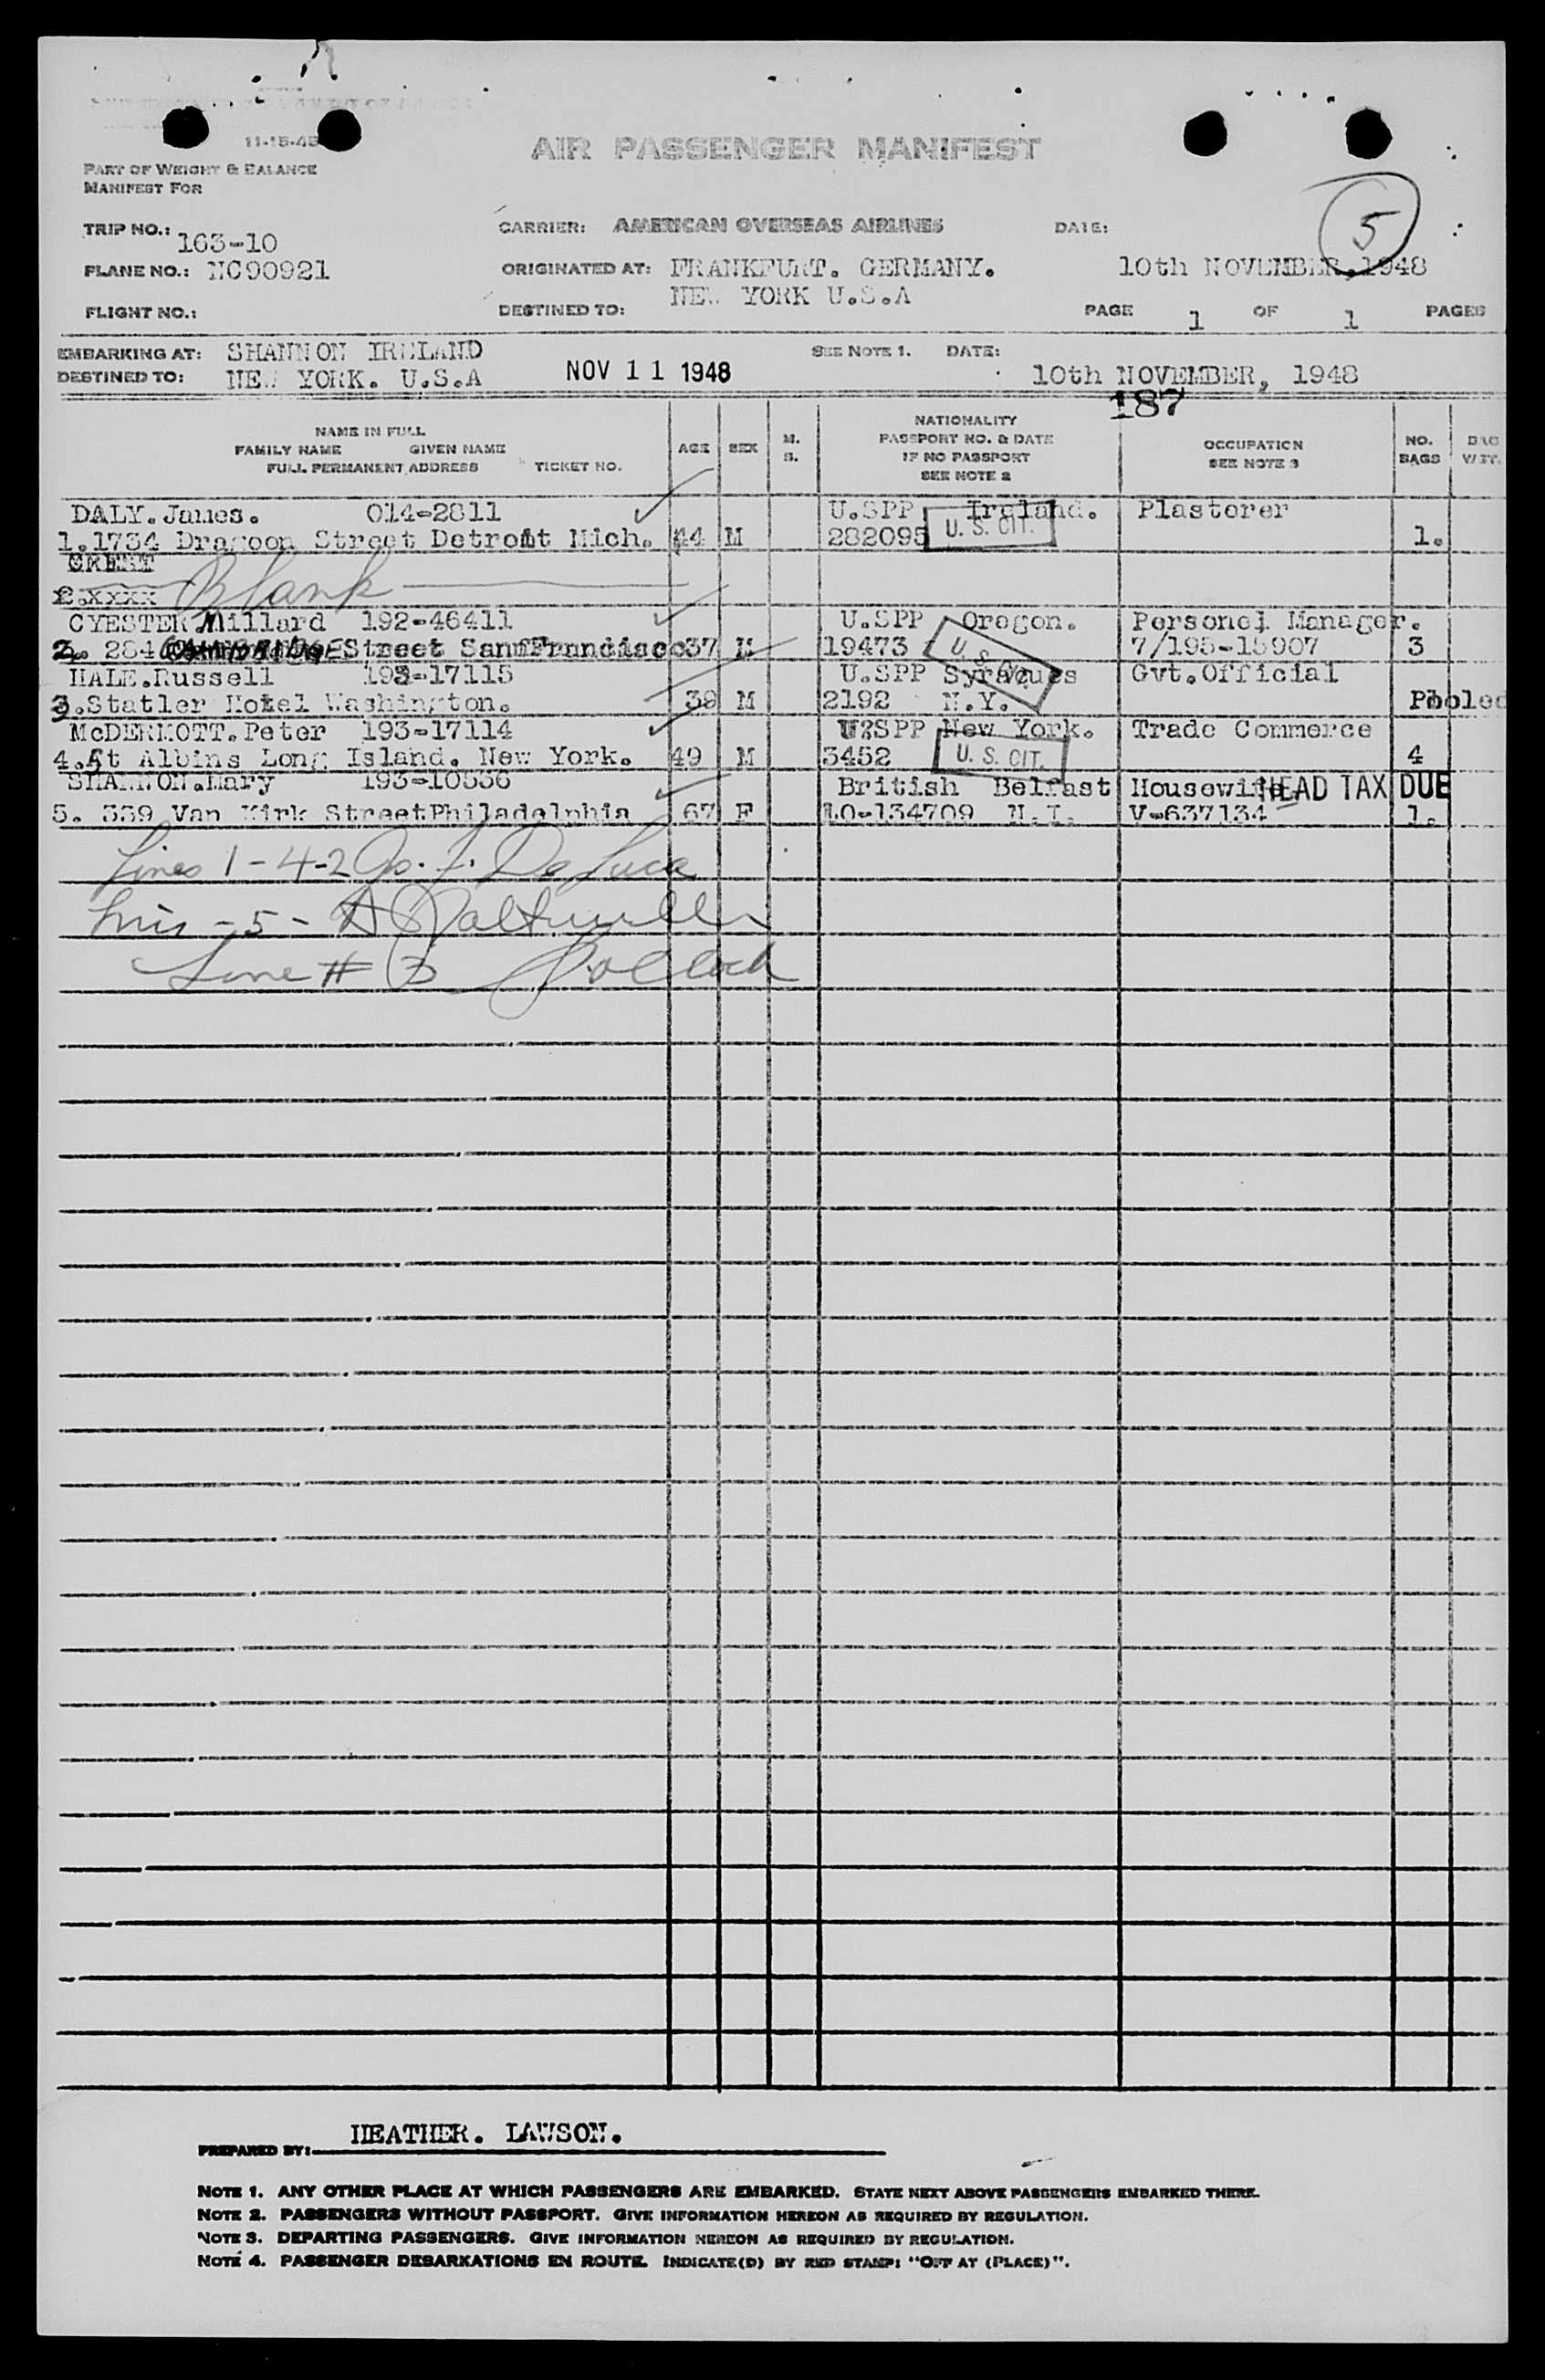 11-15-45
AIR PASSENGER MANIFEST
PART OF WEIGHT & BALANCE
MANIFEST FOR
5
TRIP NO.: 163-10
CARRIER: AMERICAN OVERSEAS AIRLINES
DATE:
PLANE NO.: NC90921
ORIGINATED AT: FRANKFURT. GERMANY.
10th NOVEMBER, 1948
FLIGHT NO.:
DESTINED TO: NEW YORK U.S.A
PAGE 1 OF 1 PAGES
EMBARKING AT: SHANNON IRELAND
SEE NOTE 1. DATE:
DESTINED TO: NEW YORK. U.S.A
NOV 11 1948
10th NOVEMBER, 1948
187
NAME IN FULL
FAMILY NAME GIVEN NAME
FULL PERMANENT ADDRESS TICKET NO.
AGE SEX M. S.
NATIONALITY
PASSPORT NO. & DATE
IF NO PASSPORT
SEE NOTE 2
OCCUPATION
SEE NOTE 3
NO. BAGS
BAG WGT.
DALY. James. 014-2811 U.SPP Ireland. Plasterer
1.1734 Dragoon Street Detroit Mich. 44 M 282095 U. S. CIT. 1.
Blank
2.xxxx
CYESTER Millard 192-46411 U.SPP Oregon. Personel Manager.
2. 284 CAMBRIDGE Street San Francisco 37 M 19473 U. S. CIT. 7/195-15907 3
HALE.Russell 193-17115 U.SPP Syracues Gvt.Official
3.Statler Hotel Washington. 39 M 2192 N.Y. Pooled
McDERMOTT. Peter 193-17114 U.SPP New York. Trade Commerce
4.St Albins Long Island. New York. 49 M 3452 U. S. CIT. 4
SHANNON.Mary 193-10536 British Belfast Housewife HEAD TAX DUE
5. 339 Van Kirk StreetPhiladelphia 67 F LO-134709 N.I. V-637134 1.
Lines 1-4-2 Jos. F. De Luca
Line -5-
Line # 3 Pollock
PREPARED BY: HEATHER. LAWSON.
NOTE 1. ANY OTHER PLACE AT WHICH PASSENGERS ARE EMBARKED. STATE NEXT ABOVE PASSENGERS EMBARKED THERE.
NOTE 2. PASSENGERS WITHOUT PASSPORT. GIVE INFORMATION HEREON AS REQUIRED BY REGULATION.
NOTE 3. DEPARTING PASSENGERS. GIVE INFORMATION HEREON AS REQUIRED BY REGULATION.
NOTE 4. PASSENGER DEBARKATIONS EN ROUTE. INDICATE(D) BY RED STAMP: "OFF AT (PLACE)".